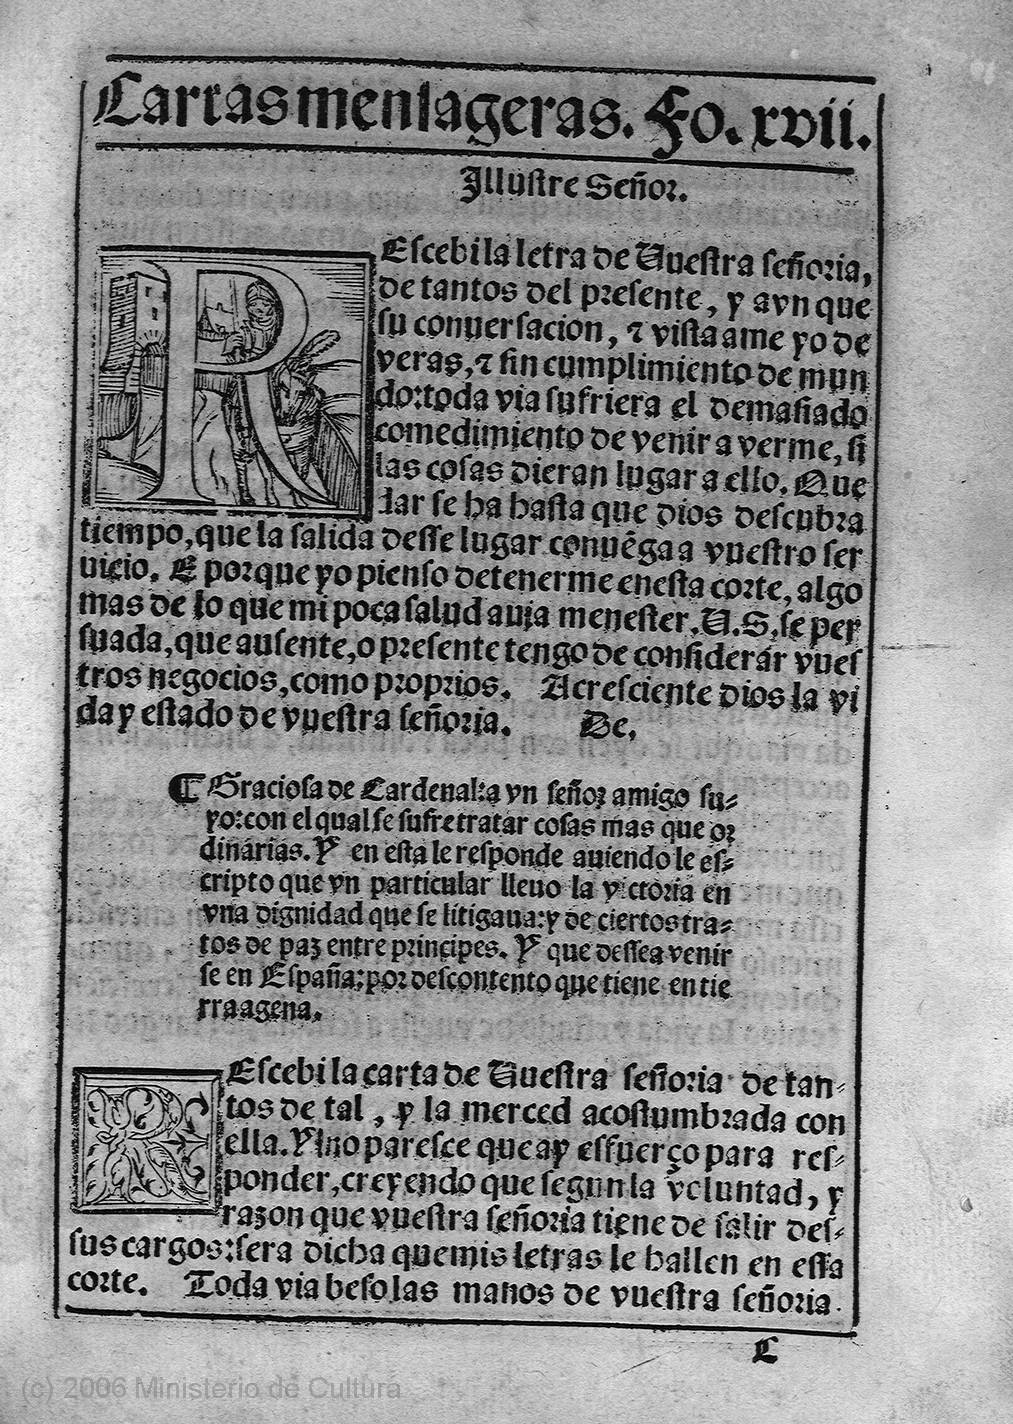 Cartas mensageras. Fo. xvii.
Illustre Señor.
REscebi la letra de Vuestra señoria,
de tantos del presente, y avn que
su conuersacion, ⁊ vista ame yo de
veras, ⁊ sin cumplimiento de mun
do: toda via sufriera el demasiado
comedimiento de venir a verme, si
las cosas dieran lugar a ello. Que
dar se ha hasta que dios descubra
tiempo, que la salida desse lugar conuẽga a vuestro ser
uicio. E porque yo pienso detenerme enesta corte, algo
mas de lo que mi poca salud auia menester. V. S. se per
suada, que ausente, o presente tengo de considerar vues
tros negocios, como proprios. Acresciente dios la vi
da y estado de vuestra señoria. De.
¶ Graciosa de Cardenal: a vn señor amigo su-
yo: con el qual se sufre tratar cosas mas que or
dinarias. Y en esta le responde auiendo le es-
cripto que vn particular lleuo la victoria en
vna dignidad que se litigaua: y de ciertos tra-
tos de paz entre principes. Y que dessea venir
se en España: por descontento que tiene en tie
rra agena.
REscebi la carta de Vuestra señoria de tan-
tos de tal, y la merced acostumbrada con
ella. Y no paresce que ay esfuerço para res-
ponder, creyendo que segun la voluntad, y
razon que vuestra señoria tiene de salir des-
sus cargos: sera dicha que mis letras le hallen en essa
corte. Toda via beso las manos de vuestra señoria
C
(c) 2006 Ministerio de Cultura